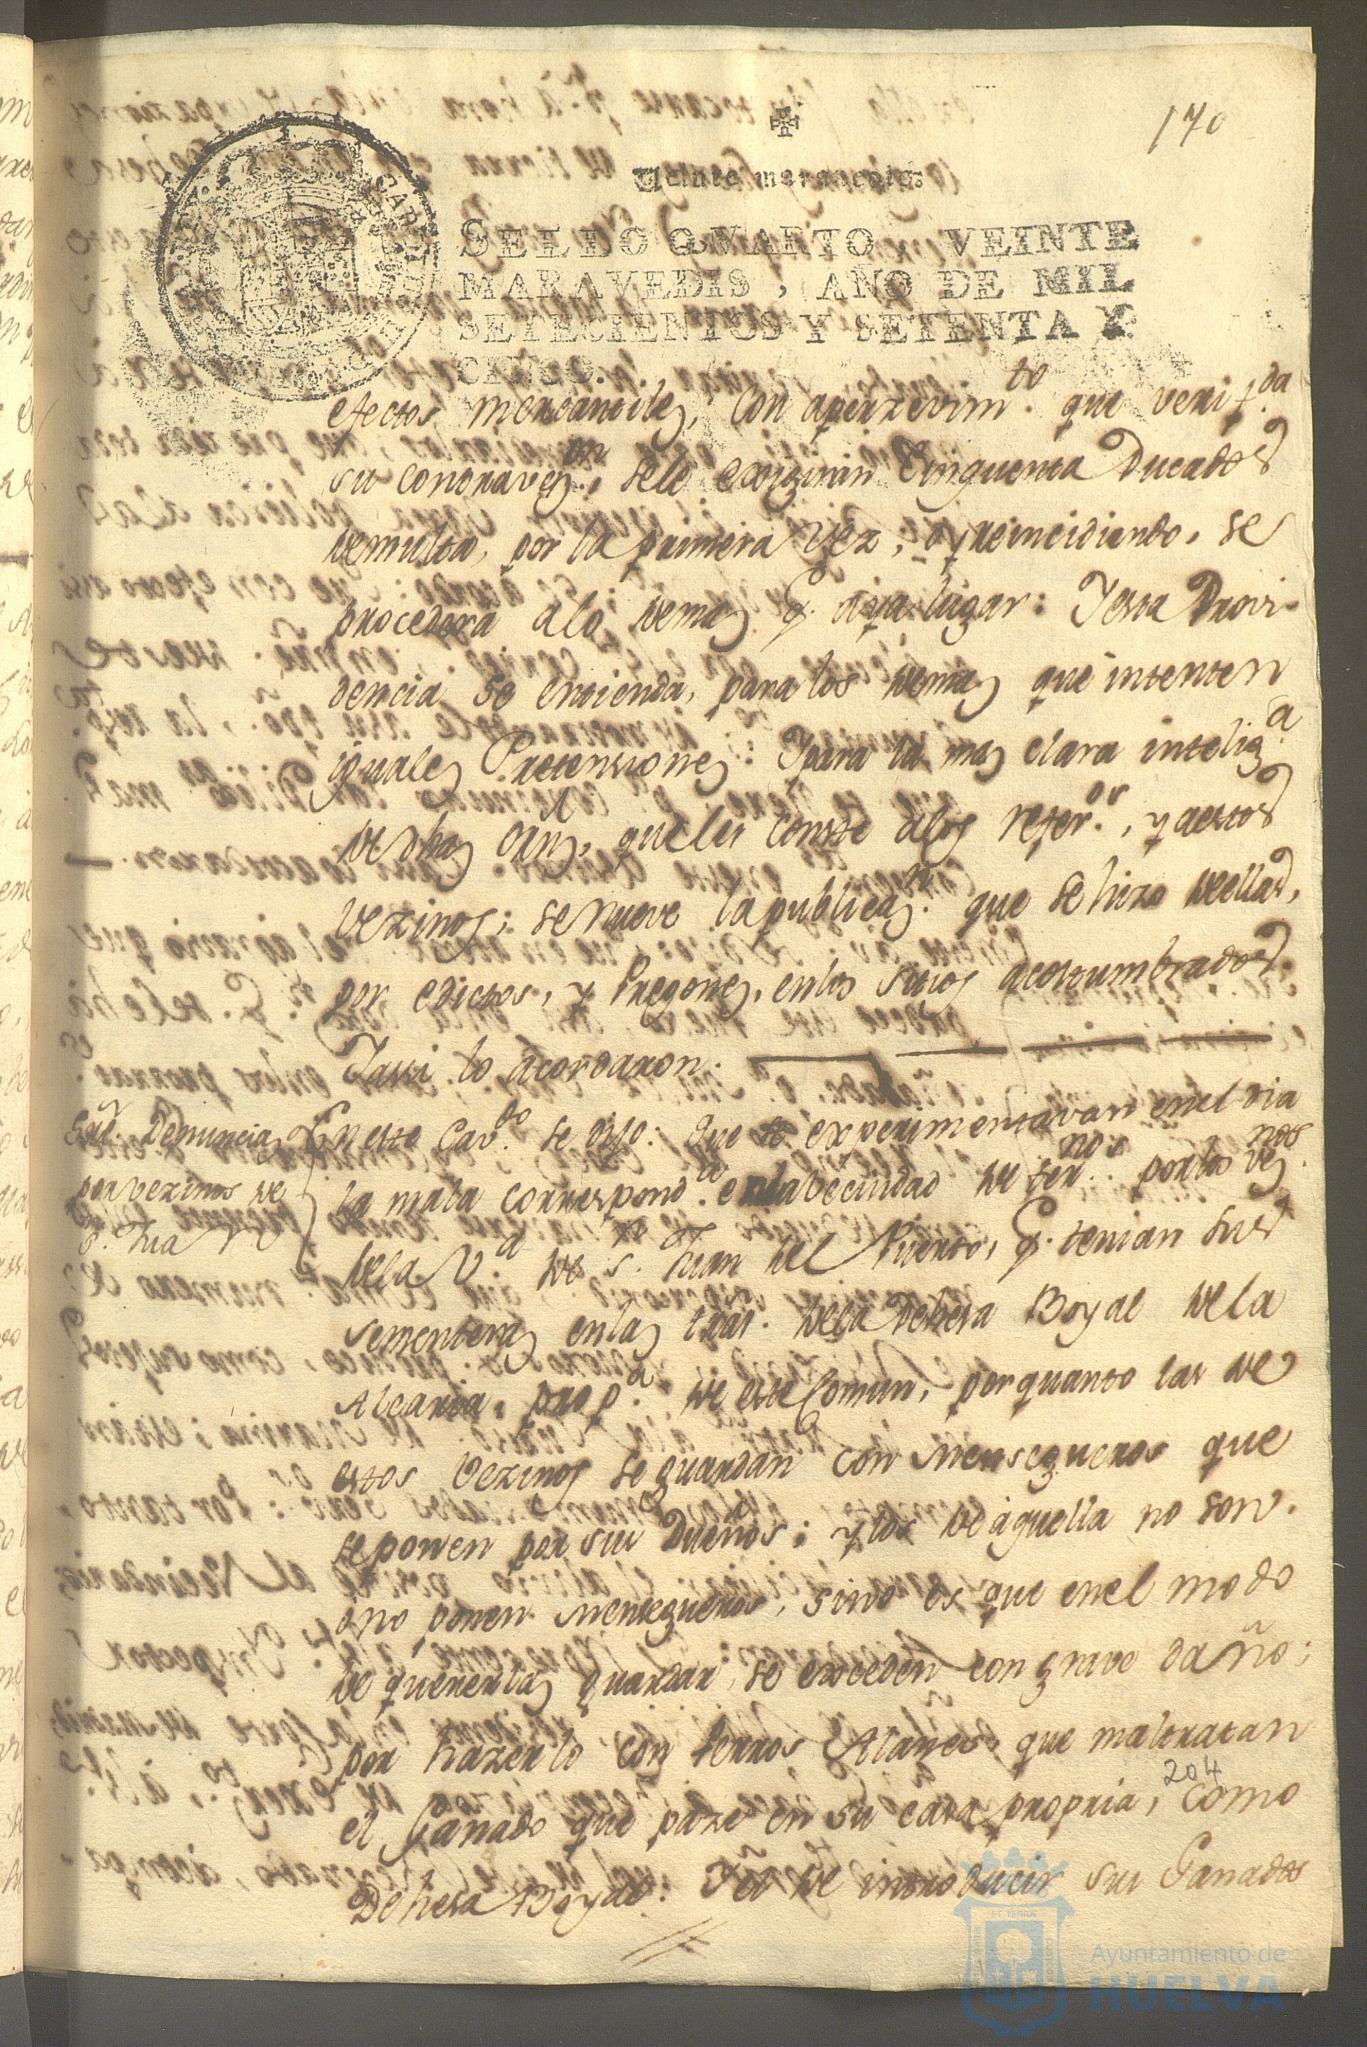 170
Veinte maravedis
SELLO QVARTO, VEINTE
MARAVEDIS, AÑO DE MIL
SETECIENTOS Y SETENTA Y
CINCO.
efectos mercantiles, con aperzevim.to que verif.da
su contraven.on, sele exigirin Cinquenta Ducados
de multa, por la primera Vez, y reincidiendo, se
procedera alo demas q. aya lugar: Yesta Provi-
dencia se entienda, para los demas que intenten
iguales Pretensiones: Ypara la mas clara intelig.a
de dhas Orns, que les conste alos refer.os, y aestos
Vezinos; se nueve la publicaz.n que se hizo de ellas,
por edictos, y Pregones, en los sitios acostumbrados.
Yassi lo acordaron.
Sre. Denuncias
por vezinos de
S. Jua
En este Cav.do se dijo: Que se experimentavan en el dia
la mala correspond.a en la beciudad de ter.nos por los vez.nos
dela V.a de S.n Juan del Puerto, q. tenian sus
sementeras enlas tras. dela Dehesa Boyal dela
Alcaria, prop.a de este Comun, por quanto las de
estos Vezinos se guardan con Mensegueros que
se ponen por sus Dueños; y los de aquella no son.
o no ponen Mensegueros, sino es que en el modo
de quererlas guardar, se exceden con grave daño;
por hazerlo con Perros Alanes, que maltratan
el Ganado que paze en su casa propria, como
204
Dehesa Boyal: Y el de introducir sus Ganados
Ayuntamiento de
HUELVA